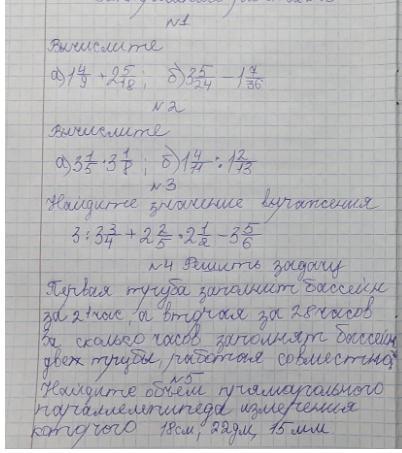 №1
Вычислите
а) 1 4/9 + 2 5/18; б) 3 5/24 - 1 7/36
№2
Вычислите
а) 3 1/5 · 3 1/8; б) 1 4/11 : 1 2/13
№3
Найдите значение выражения
3 : 3 3/4 + 2 2/5 · 2 1/2 - 3 5/6
№4 Решить задачу
Первая труба заполнит бассейн
за 21 час, а вторая за 28 часов
За сколько часов заполнят бассейн
двех трубы, работая совместно,
№5
Найдите объем прямоугольного
параллелепипеда измерения
которого 18см, 22дм, 15мм